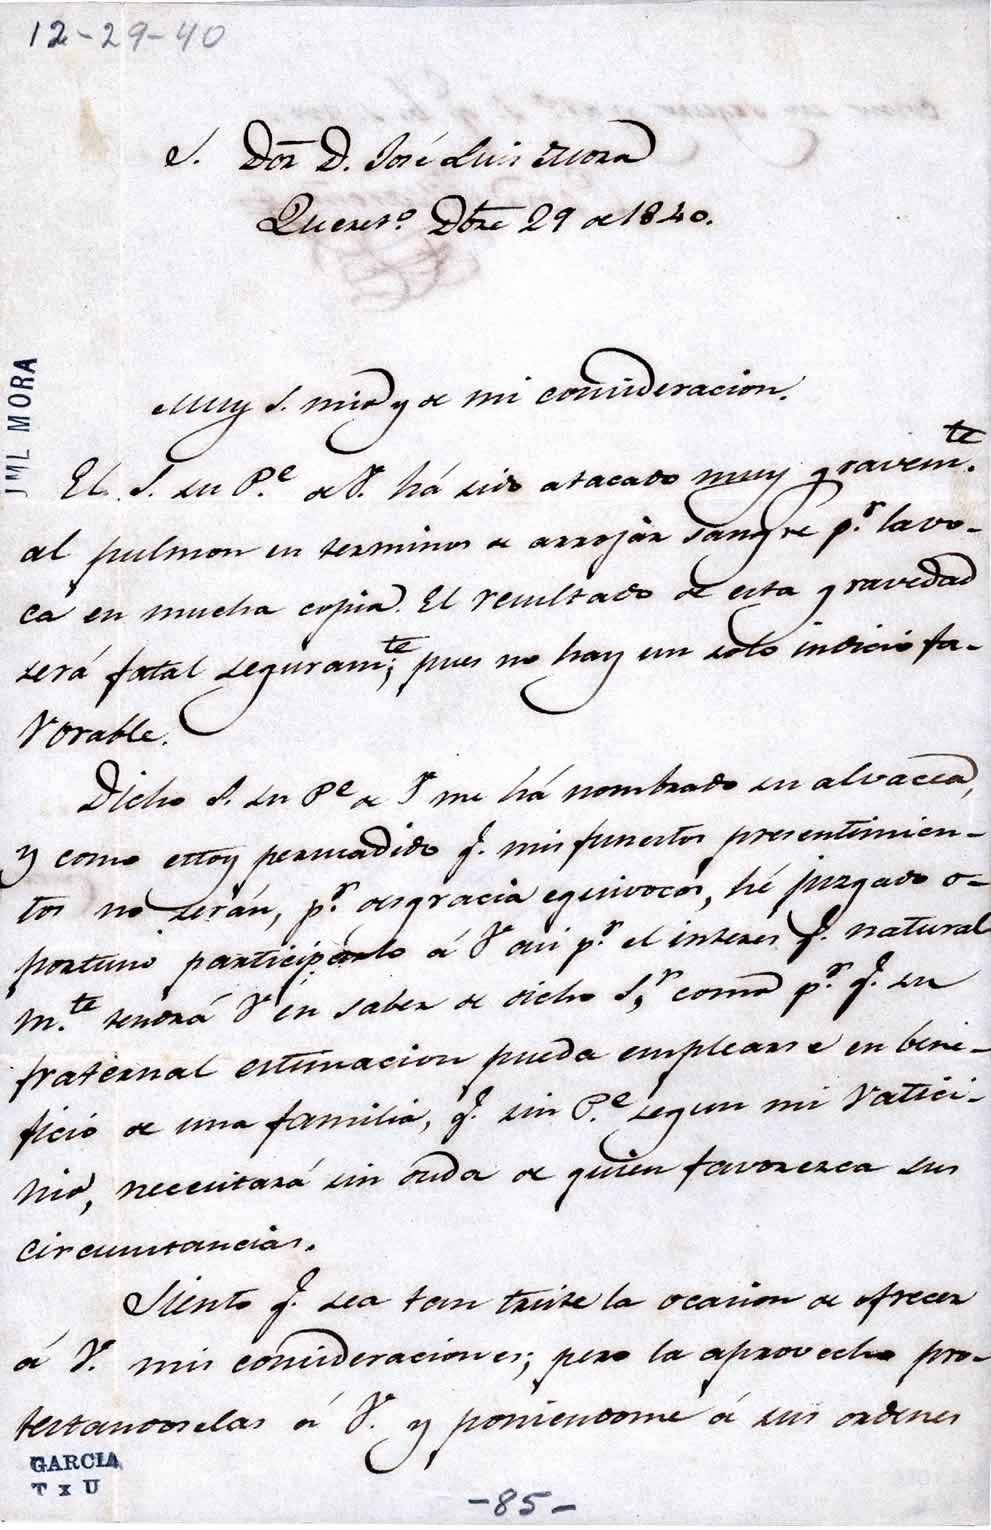 12-29-40
S. Dor. D. José Luis Mora
Queret.o Dbre 29 de 1840.
JML MORA
Muy S. mio y de mi consideracion.
El S. su P.e de V. há sido atacado muy gravem.te
al pulmon en terminos de arrojar sangre p.r la vo-
ca en mucha copia. El resultado de esta gravedad
será fatal seguram.te; pues no hay un solo indicio fa-
vorable.
Dicho S. su P.e de V me há nombrado su alvacea,
y como estoy persuadido q. mis funestos presentimien-
tos no serán, p.r desgracia equivocos, hé juzgado o-
portuno participarlo á V asi p.r el interes q. natural
m.te tendrá V en saber de dicho S.r, como p.r q. su
fraternal estimacion pueda emplearse en bene-
ficio de una familia, q. sin P.e segun mi vatici-
nio, necesitará sin duda de quien favoresca sus
circunstancias.
Siento q. sea tan triste la ocasion de ofrecer
á V. mis consideraciones; pero la aprovecho pro-
testandoselas á V. y poniendome á sus ordenes
GARCIA
T x U
-85-